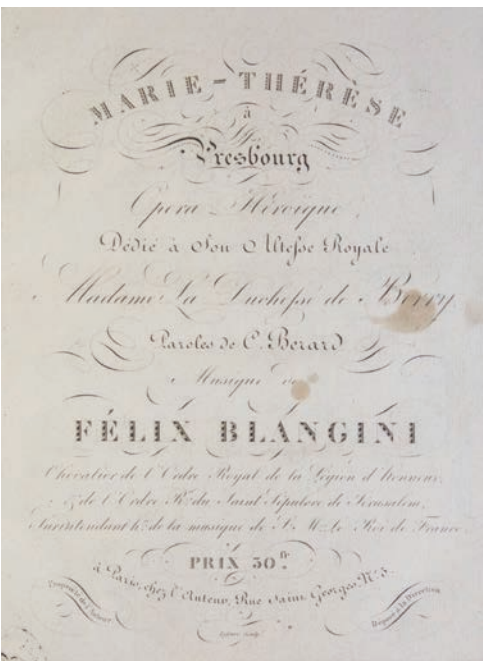 MARIE-THÉRÈSE
à
Presbourg
Opera Héroïque
Dédié à Son Altesse Royale
Madame La Duchesse de Berry
Paroles de C. Berard
Musique de
FÉLIX BLANGINI
Chevalier de l'Ordre Royal de la Légion d'honneur,
& de l'Ordre Rl. du Saint Sépulcre de Jerusalem,
Surintendant hre. de la musique de S. M. le Roi de France.
PRIX 30fr.
à Paris, chez l'Auteur, Rue Saint Georges, No. 3.
Propriété de l'Auteur
Déposé à la Direction